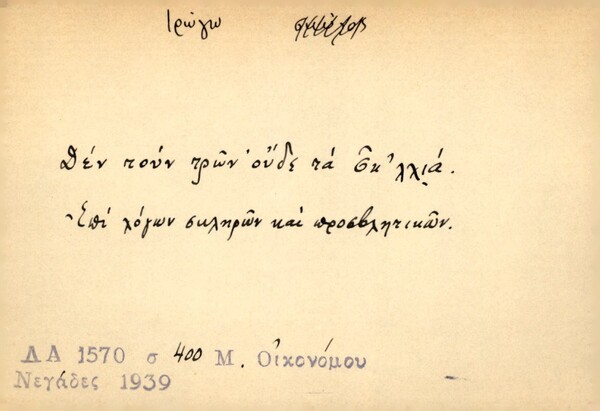 τρώγω
Δέν τούν τρῶν' οὔδε τά σκ'λχιά.
Ἐπί λόγων σκληρῶν καί προσβλητικῶν.
ΛΑ 1570 σ 400 Μ. Οἰκονόμου
Νεγάδες 1939